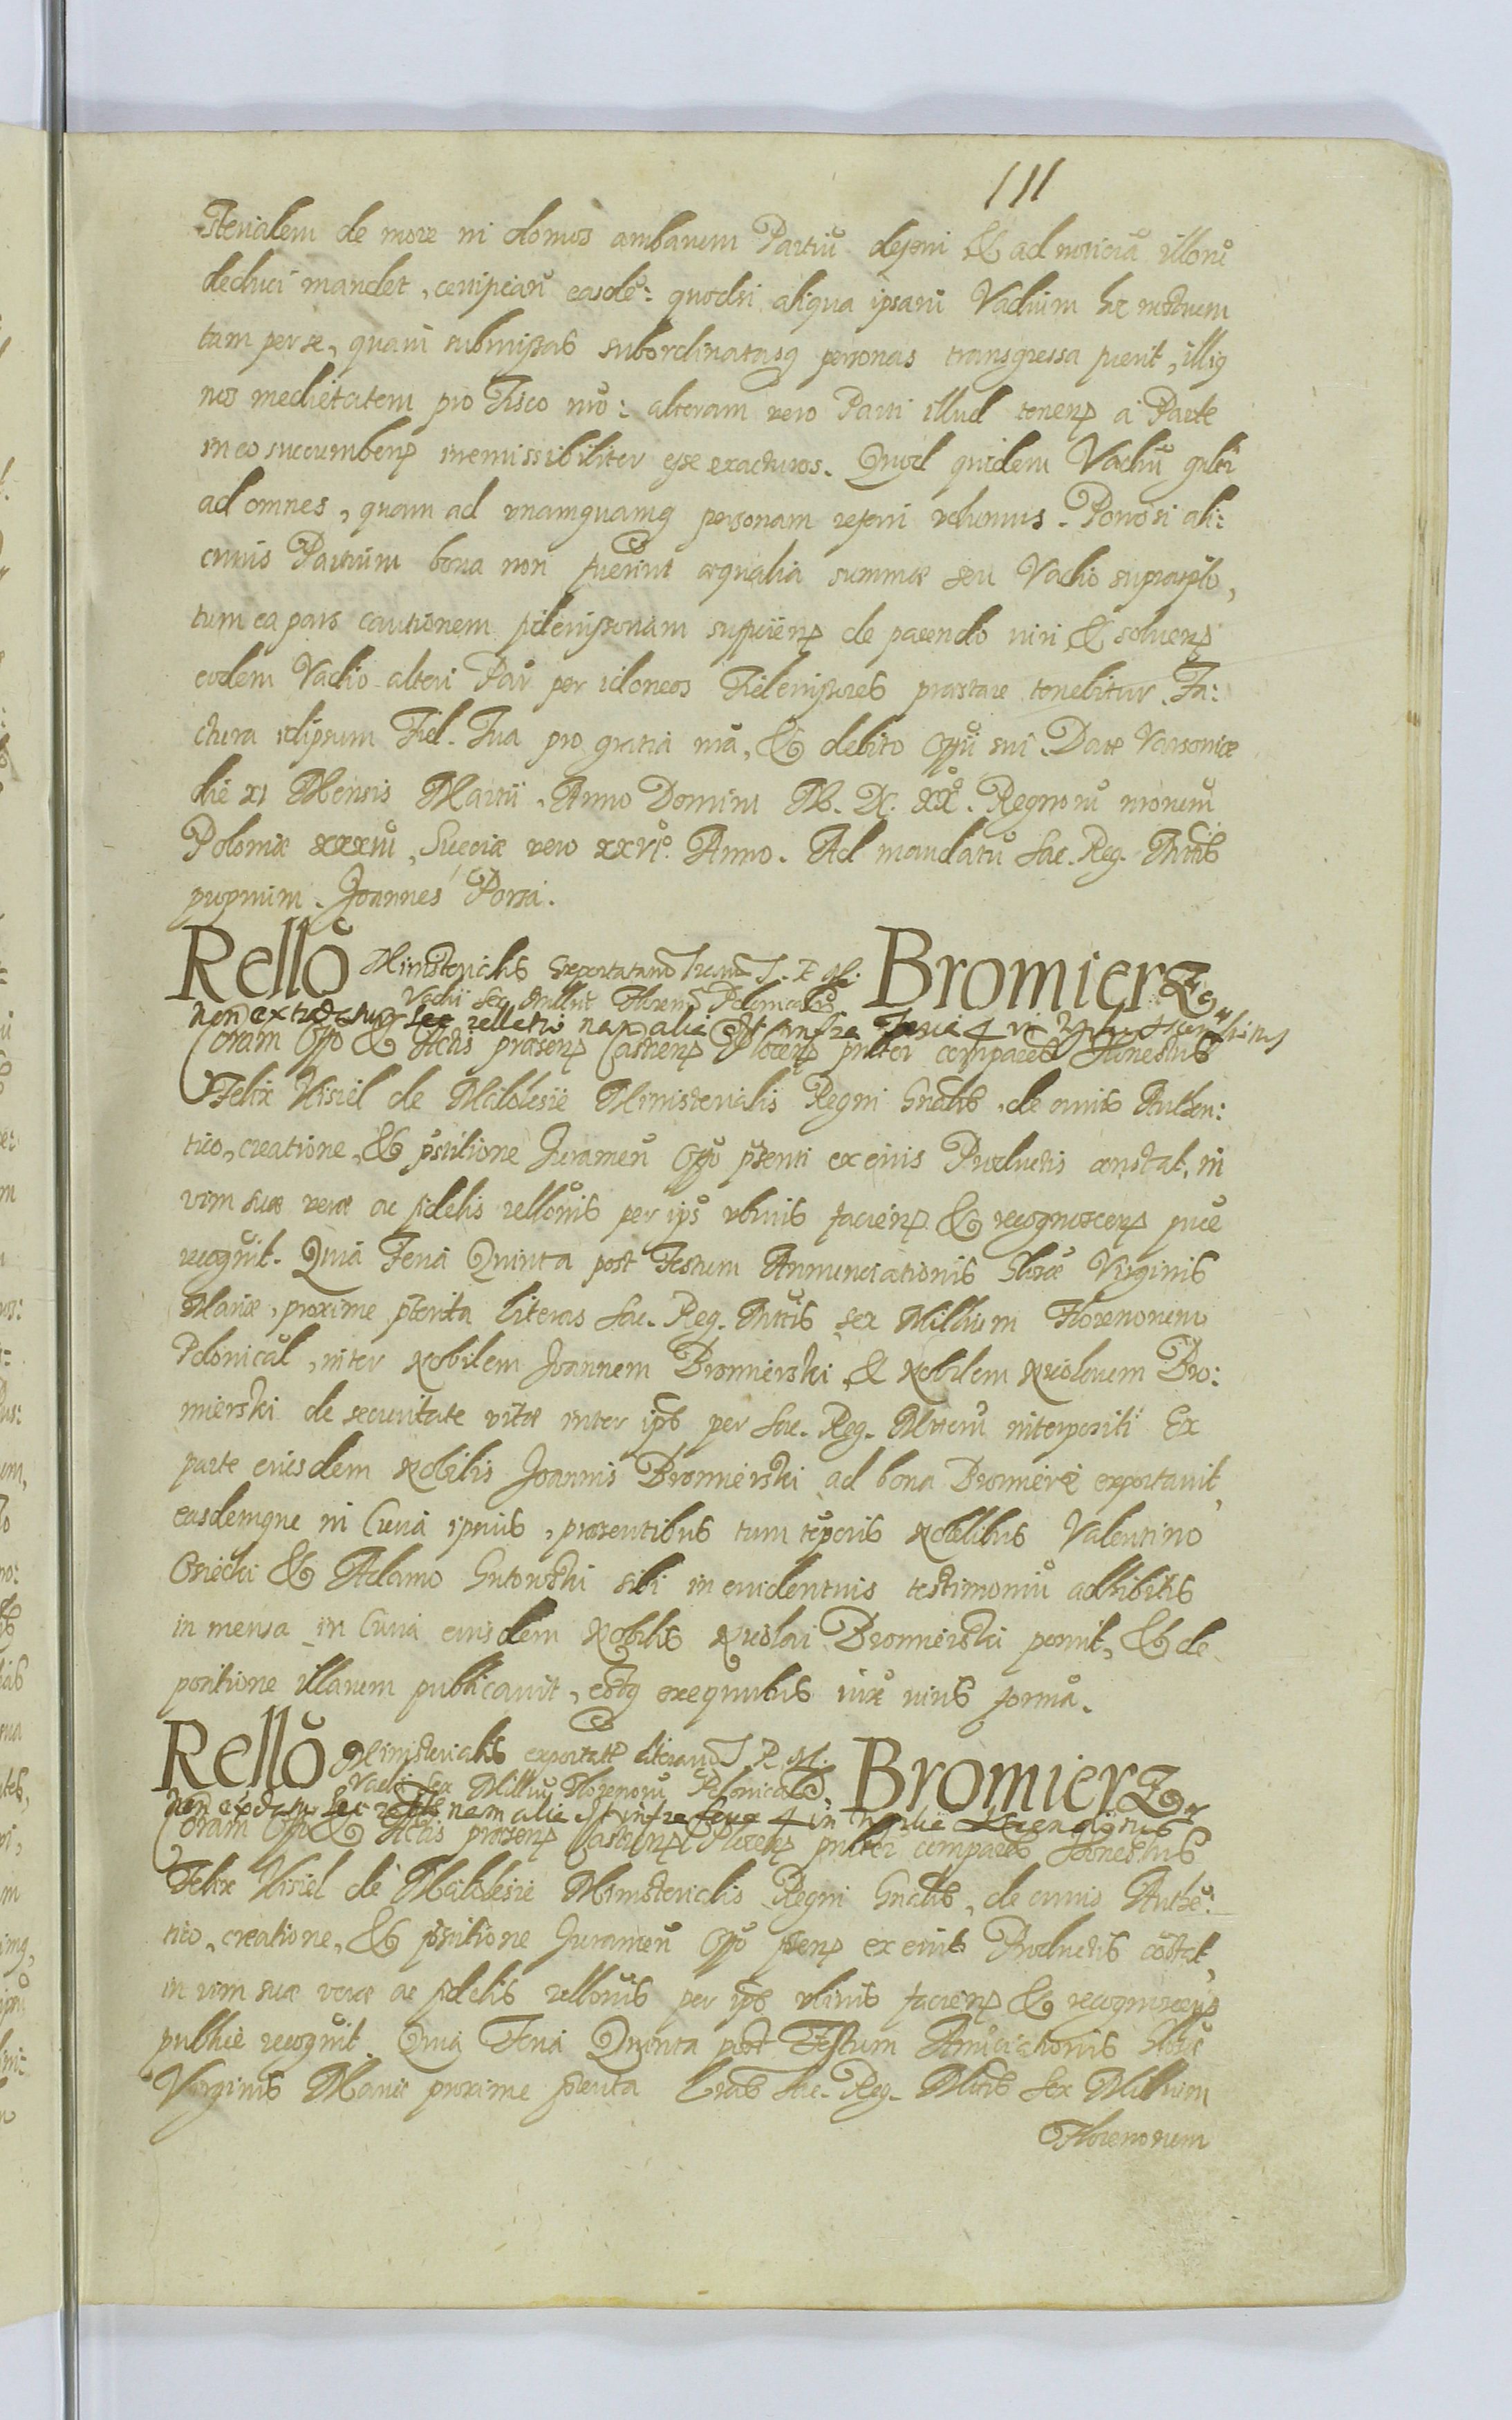 111
sterialem de more in domos ambarum Partiū deferri & ad noticiā illorū
deduci mandet, certificaū easdē: quodsi aliqua ipsarū Vadium hoc nostrum
tam per se, quam submissas subordinatasq personas transgressa fuerit, illiq
nos medietatem pro Fisco nro: alteram vero Parti illud tenen a Parte
in eo succumben irremissibiliter esse exacturos. Quod quidem Vadiū gnlr
ad omnes, quam ad unamquamq personam referri volumus. Porro si ali:
cuius Partium bona non fuerint æqualia summæ seu Vadio suprascpto,
tum ea pars cautionem fideiussoriam sufficien de parendo iuri & solven
eodem Vadio alteri Parti per idoneos Fideiussores præstare tenebitur. Fa:
ctura idipsum Fid. Tua pro gratia nrā, & debito Offii sui. Datæ Varsoviæ
die XI Mensis Martii. Anno Domini M. D. C. XX. Regnorū nrorum
Poloniæ XXXIII, Sueciæ vero XXVI. Anno. Ad mandatū Sac. Reg. Mttis
proprium. Joannes Porsi.
Rello Ministerialis exportatarū lrarū S. R. M. Bromierz
Vadii sex Milliū Floren Polonicaliū
non extradatur hec relletio nam alie est infra feria 4
Coram Offo & Actis præsen Castren Plocen pnliter comparens Honestus
Felix Kisiel de Maldesie Ministerialis Regni Gnalis, de cuius Authen:
tico, creatione, & pstitione Juramen Offo psenti ex eius Productis constat, in
vim suæ veræ ac fidelis rellonis per ips ulnius facien & recognoscen puce
recognit. Quia Feria Quinta post Festum Annunciationis Glosæ Virginis
Mariæ, proxime pterita literas Sac. Reg. Mttis sex Millium Florenorum
Polonical, inter Nobilem Joannem Bromierski & Nobilem Nicolaum Bro:
mierski de securitate vitæ inter ips per Sac. Reg. Mttem interpositi Ex
parte eiusdem Nobilis Joannis Bromierski ad bona Bromierz exportavit,
easdemque in Curia ipsius, præsentibus tum tēporis Nobilibus Valentino
Osiecki & Adamo Gutowski sibi in evidentius testimoniū adhibitis
in mensa in Curia eiusdem Nobilis Nicolai Bromierski posuit, & de
positione illarum publicavit, eosq exequutus iuxᵃ iuris formā.
Rello Ministerialis exportatæ literarū S. R. M. Bromierz
Vadii Sex Milliū Florenorū Polonicaliū
non extradatur hec relletio nam alie est infra feria 4 in vigilie
Coram Offo & Actis præsen Castren Plocen pnliter comparens Honestus
Felix Kisiel de Maldesie Ministerialis Regni Gnalis, de cuius Authē:
tico, creatione, & pstitione Juramen Offo psen ex eius Productis cōstat,
in vim suæ veræ ac fidelis rellonis per ips ulnius facien & recognoscen
publice recognit. Quia Feria Quinta post Festum Annūciationis Glosæ
Virginis Mariæ proxime pterita lras Sac. Reg. Mttis Sex Millium
Florenorum